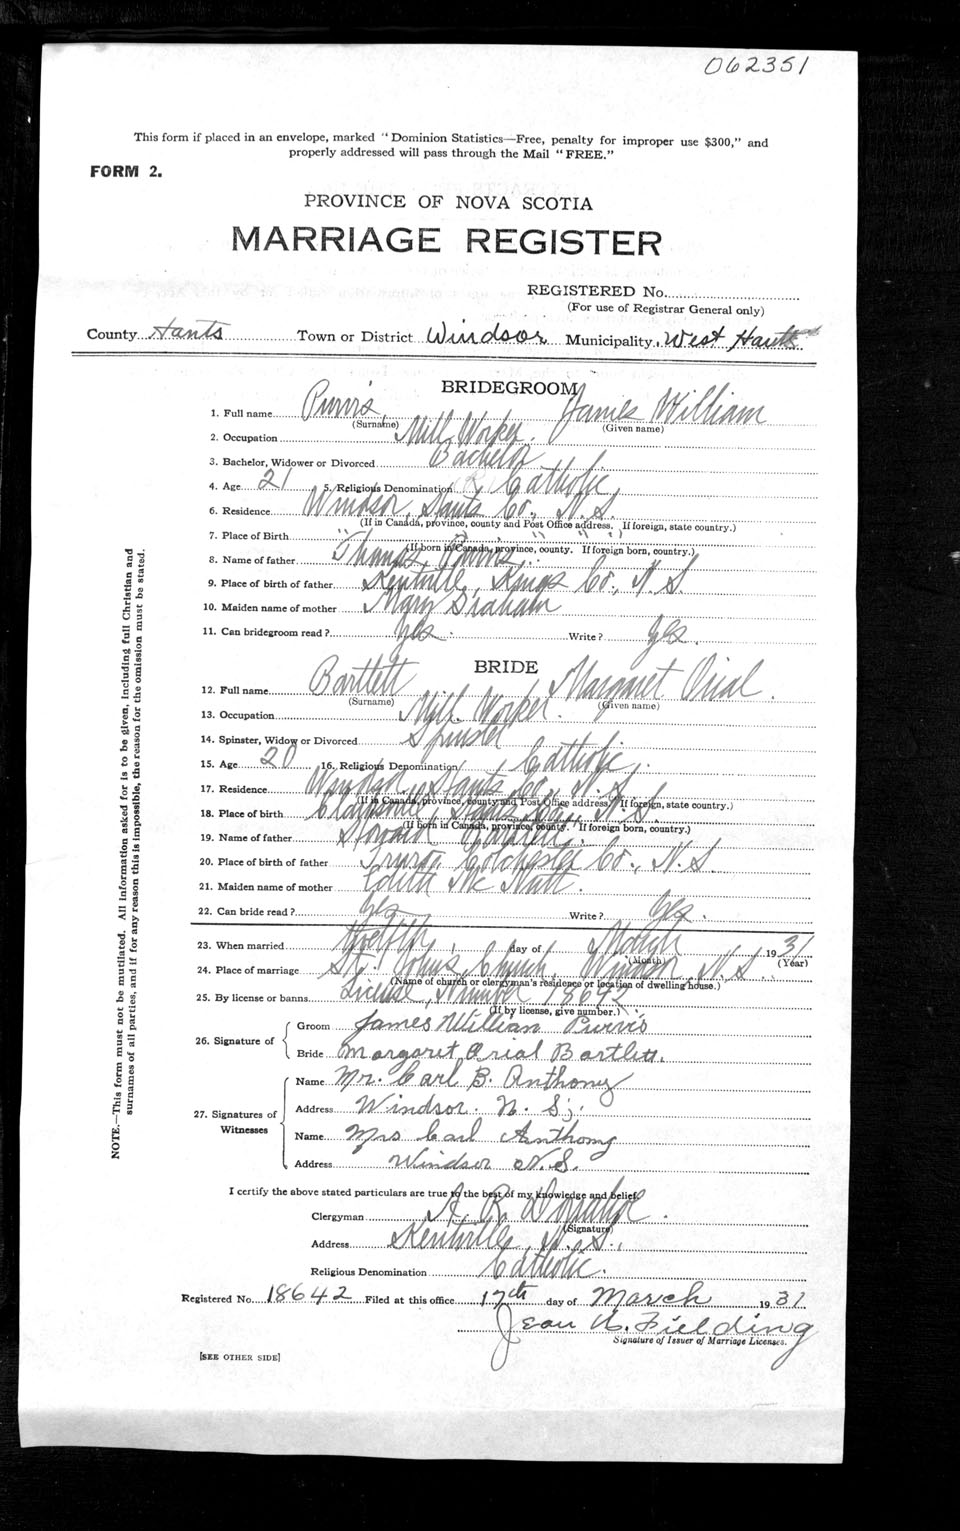 062351
This form if placed in an envelope, marked "Dominion Statistics—Free, penalty for improper use $300," and
properly addressed will pass through the Mail "FREE."
FORM 2.
PROVINCE OF NOVA SCOTIA
MARRIAGE REGISTER
REGISTERED No.
(For use of Registrar General only)
County Hants Town or District Windsor Municipality West Hants
BRIDEGROOM
1. Full name Purvis James William
(Surname) (Given name)
2. Occupation Mill Worker.
3. Bachelor, Widower or Divorced Bachelor
4. Age 21 5. Religious Denomination R. Catholic
6. Residence Windsor, Hants Co., N.S.
(If in Canada, province, county and Post Office address. If foreign, state country.)
7. Place of Birth " " " "
(If born in Canada, province, county. If foreign born, country.)
8. Name of father Thomas Purvis
9. Place of birth of father Kentville, Kings Co., N.S.
10. Maiden name of mother Mary Graham
11. Can bridegroom read? Yes. Write? Yes.
BRIDE
12. Full name Bartlett Margaret Orial.
(Surname) (Given name)
13. Occupation Mill Worker.
14. Spinster, Widow or Divorced Spinster
15. Age 20 16. Religious Denomination Catholic.
17. Residence Windsor, Hants Co., N.S.
(If in Canada, province, county and Post Office address. If foreign, state country.)
18. Place of birth N.S.
(If born in Canada, province, county. If foreign born, country.)
19. Name of father Bartlett.
20. Place of birth of father Truro, Colchester Co., N.S.
21. Maiden name of mother Edith Mc Nutt.
22. Can bride read? Yes Write? Yes.
23. When married Twelfth day of March 1931
(Month) (Year)
24. Place of marriage St. Johns Church, Windsor, N.S.
(Name of church or clergyman's residence or location of dwelling house.)
25. By license or banns License, Number 18642
(If by license, give number.)
26. Signature of
Groom James William Purvis
Bride Margaret Orial Bartlett.
27. Signatures of
Witnesses
Name Mr. Carl B. Anthony
Address Windsor. N.S.
Name Mrs Carl Anthony
Address Windsor N.S.
I certify the above stated particulars are true to the best of my knowledge and belief.
Clergyman A. R. Donahoe.
(Signature)
Address Kentville, N.S.,
Religious Denomination Catholic.
Registered No. 18642 Filed at this office 17th day of March 1931
Jean Fielding
Signature of Issuer of Marriage Licenses.
[SEE OTHER SIDE]
NOTE.—This form must not be mutilated. All information asked for is to be given, including full Christian and
surnames of all parties, and if for any reason this is impossible, the reason for the omission must be stated.